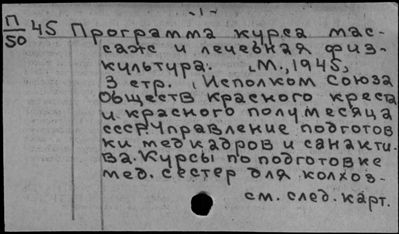 -1-
П/50 45 Программа курса мас-
саж и лечебная физ-
культура. М., 1945,
3 стр. (Исполком Союза
Обществ красного креста
и красного полумесяца
СССР. Управление подготов
ки мед кадров и санакти-
ва. Курсы по подготовке
мед. сестер для колхоз-
см. след. карт.